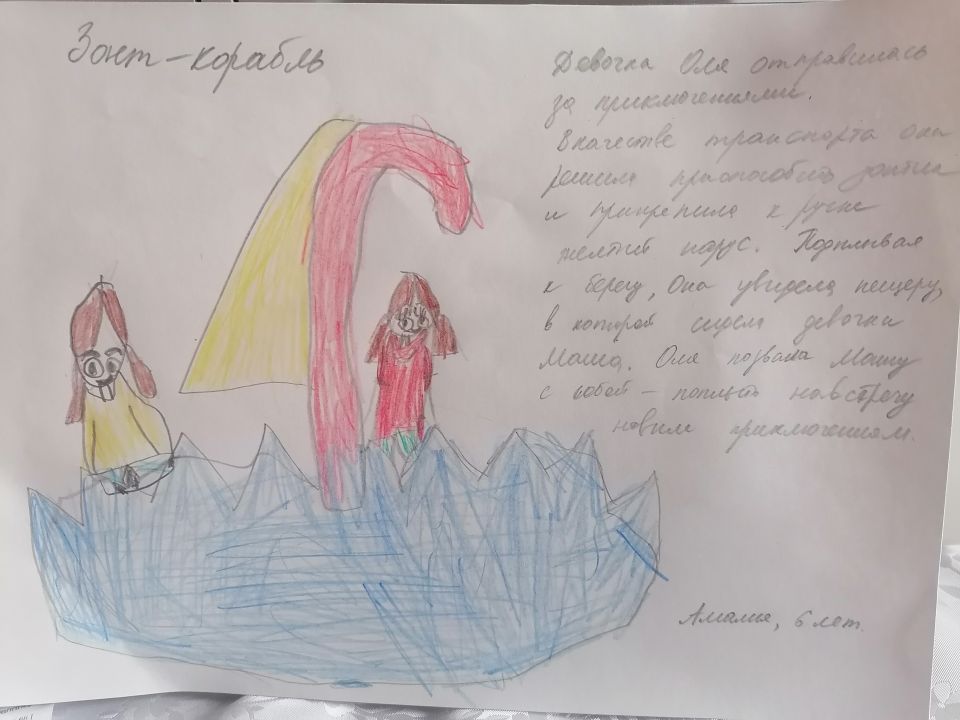 Зонт-корабль
Девочка Оля отправилась
за приключениями.
В качестве транспорта она
решила приспособить зонтик
и прикрепила к ручке
желтый парус. Подплывая
к берегу, Она увидела пещеру,
в которой сидела девочка
Маша. Оля позвала Машу
с собой – поплыть навстречу
новым приключениям.
Амалия, 6 лет.